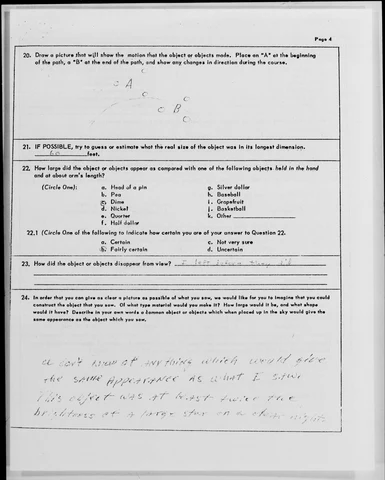 Page 4
20. Draw a picture that will show the motion that the object or objects made. Place an "A" at the beginning
of the path, a "B" at the end of the path, and show any changes in direction during the course.
A
B
21. IF POSSIBLE, try to guess or estimate what the real size of the object was in its longest dimension.
60 feet.
22. How large did the object or objects appear as compared with one of the following objects held in the hand
and at about arm's length?
(Circle One): a. Head of a pin g. Silver dollar
b. Pea h. Baseball
c. Dime i. Grapefruit
d. Nickel j. Basketball
e. Quarter k. Other
f. Half dollar
22.1 (Circle One of the following to indicate how certain you are of your answer to Question 22.
a. Certain c. Not very sure
b. Fairly certain d. Uncertain
23. How did the object or objects disappear from view? I left before they did
24. In order that you can give as clear a picture as possible of what you saw, we would like for you to imagine that you could
construct the object that you saw. Of what type material would you make it? How large would it be, and what shape
would it have? Describe in your own words a common object or objects which when placed up in the sky would give the
same appearance as the object which you saw.
don't know of anything which would give
the same appearance as what I saw.
This object was at least twice the
brightness of a large star on a clear night